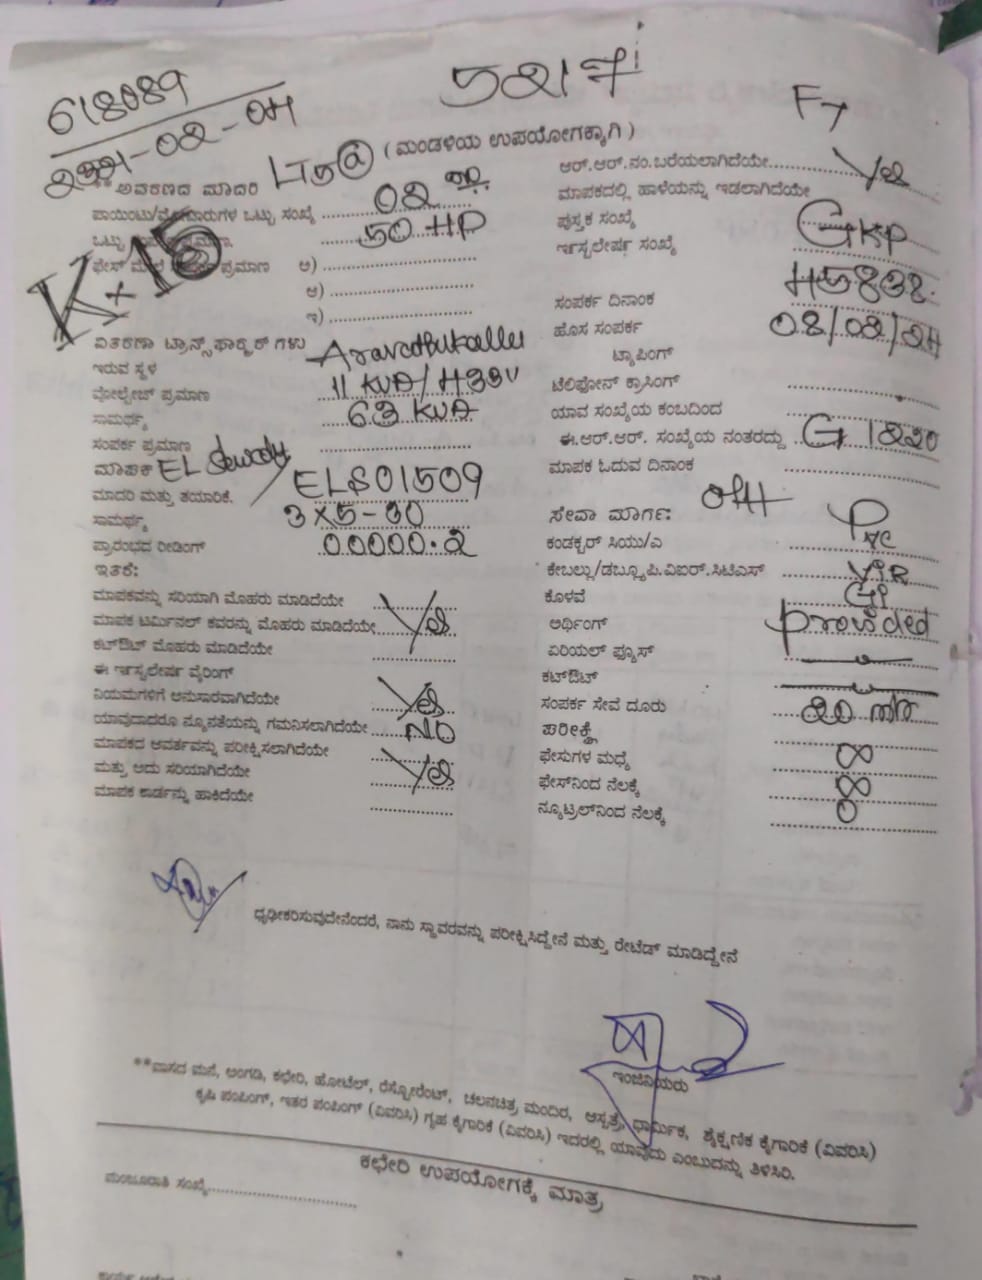 618089
5217
F7
LT5@ (ಮಂಡಳಿಯ ಉಪಯೋಗಕ್ಕಾಗಿ)
** ಅವಕರಣದ ಮಾದರಿ
ಒಟ್ಟು ಸಂಖ್ಯೆ 02
50 HP
ಪ್ರಮಾಣ ಅ)
ಆ)
ಇ)
ವಿತರಣಾ ಟ್ರಾನ್ಸ್‌ಫಾರ್ಮರ್‌ಗಳು
ಇರುವ ಸ್ಥಳ
ವೋಲ್ಟೇಜ್ ಪ್ರಮಾಣ
63 KVA
ಸಾಮರ್ಥ್ಯ
ಸಂಪರ್ಕ ಪ್ರಮಾಣ
ಮಾಪಕ
ELS01509
ಮಾದರಿ ಮತ್ತು ತಯಾರಿಕೆ.
ಸಾಮರ್ಥ್ಯ 3X5-30
ಪ್ರಾರಂಭದ ರೀಡಿಂಗ್ 00000.2
ಇತರೆ:
ಮಾಪಕವನ್ನು ಸರಿಯಾಗಿ ಮೊಹರು ಮಾಡಿದೆಯೇ
ಮಾಪಕ ಟರ್ಮಿನಲ್ ಕವರನ್ನು ಮೊಹರು ಮಾಡಿದೆಯೇ Yes
ಕಟ್‌ಔಟ್ ಮೊಹರು ಮಾಡಿದೆಯೇ
ಈ ಇನ್ಸ್ಟಲೇಷನ್ ವೈರಿಂಗ್
ನಿಯಮಗಳಿಗೆ ಅನುಸಾರವಾಗಿದೆಯೇ Yes
ಯಾವುದಾದರೂ ನ್ಯೂನತೆಯನ್ನು ಗಮನಿಸಲಾಗಿದೆಯೇ NO
ಮಾಪಕದ ಆವರ್ತವನ್ನು ಪರೀಕ್ಷಿಸಲಾಗಿದೆಯೇ
ಮತ್ತು ಅದು ಸರಿಯಾಗಿದೆಯೇ Yes
ಮಾಪಕ ಕಾರ್ಡನ್ನು ಹಾಕಿದೆಯೇ
ಆರ್.ಆರ್.ನಂ.ಬರೆಯಲಾಗಿದೆಯೇ Yes
ಮಾಪಕದಲ್ಲಿ ಹಾಳೆಯನ್ನು ಇಡಲಾಗಿದೆಯೇ
ಪುಸ್ತಕ ಸಂಖ್ಯೆ GKP
ಇನ್ಸ್ಟಲೇಷನ್ ಸಂಖ್ಯೆ
H5838
ಸಂಪರ್ಕ ದಿನಾಂಕ
ಹೊಸ ಸಂಪರ್ಕ
ಟ್ಯಾಪಿಂಗ್
ಟೆಲಿಫೋನ್ ಕ್ರಾಸಿಂಗ್
ಯಾವ ಸಂಖ್ಯೆಯ ಕಂಬದಿಂದ
ಈ.ಆರ್.ಆರ್. ಸಂಖ್ಯೆಯ ನಂತರದ್ದು G1220
ಮಾಪಕ ಓದುವ ದಿನಾಂಕ
ಸೇವಾ ಮಾರ್ಗ: O/H
ಕಂಡಕ್ಟರ್ ಸಿಯು/ಎ
ಕೇಬಲ್ಲು/ಡಬ್ಲ್ಯೂ.ಪಿ.ವಿಐರ್.ಸಿಟಿಎಸ್ VIR
ಕೊಳವೆ GI
ಅರ್ಥಿಂಗ್ provided
ಏರಿಯಲ್ ಫ್ಯೂಸ್
ಕಟ್‌ಔಟ್
ಸಂಪರ್ಕ ಸೇವೆ ದೂರು 20 mtr
ಪಾರೀಕ್ಷೆ
ಫೇಸುಗಳ ಮಧ್ಯೆ ∞
ಫೇಸ್‌ನಿಂದ ನೆಲಕ್ಕೆ ∞
ನ್ಯೂಟ್ರಲ್‌ನಿಂದ ನೆಲಕ್ಕೆ 0
ಧೃಢೀಕರಿಸುವುದೇನೆಂದರೆ, ನಾನು ಸ್ಥಾವರವನ್ನು ಪರೀಕ್ಷಿಸಿದ್ದೇನೆ ಮತ್ತು ರೇಟೆಡ್ ಮಾಡಿದ್ದೇನೆ
ಇಂಜಿನಿಯರು
**ವಾಸದ ಮನೆ, ಅಂಗಡಿ, ಕಛೇರಿ, ಹೋಟೆಲ್, ರೆಸ್ಟೋರೆಂಟ್, ಚಲನಚಿತ್ರ ಮಂದಿರ, ಆಸ್ಪತ್ರೆ, ಧಾರ್ಮಿಕ, ಶೈಕ್ಷಣಿಕ ಕೈಗಾರಿಕೆ (ವಿವರಿಸಿ)
ಕೃಷಿ ಪಂಪಿಂಗ್, ಇತರ ಪಂಪಿಂಗ್ (ವಿವರಿಸಿ) ಗೃಹ ಕೈಗಾರಿಕೆ (ವಿವರಿಸಿ) ಇದರಲ್ಲಿ ಯಾವುದು ಎಂಬುದನ್ನು ತಿಳಿಸಿರಿ.
ಕಛೇರಿ ಉಪಯೋಗಕ್ಕೆ ಮಾತ್ರ
ಮಂಜೂರಾತಿ ಸಂಖ್ಯೆ